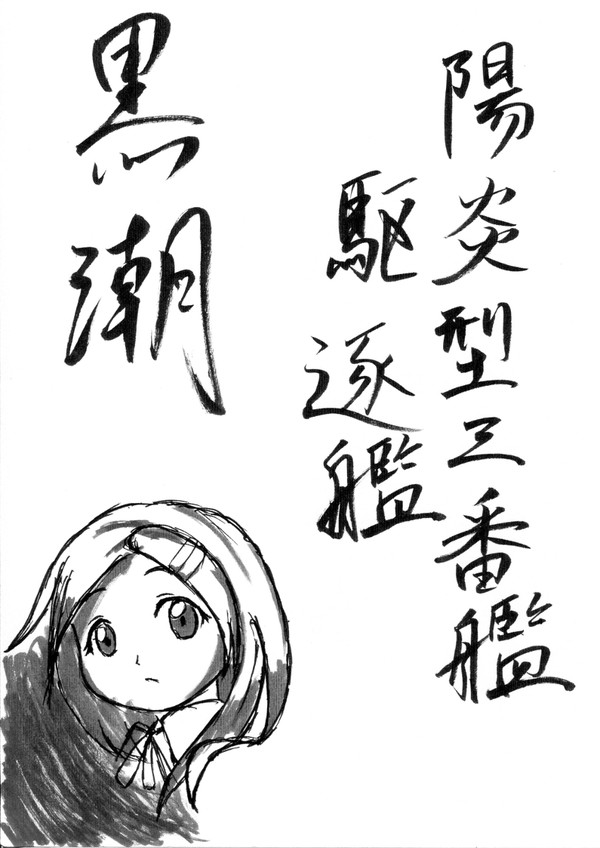 陽炎型三番艦
駆逐艦
黒潮